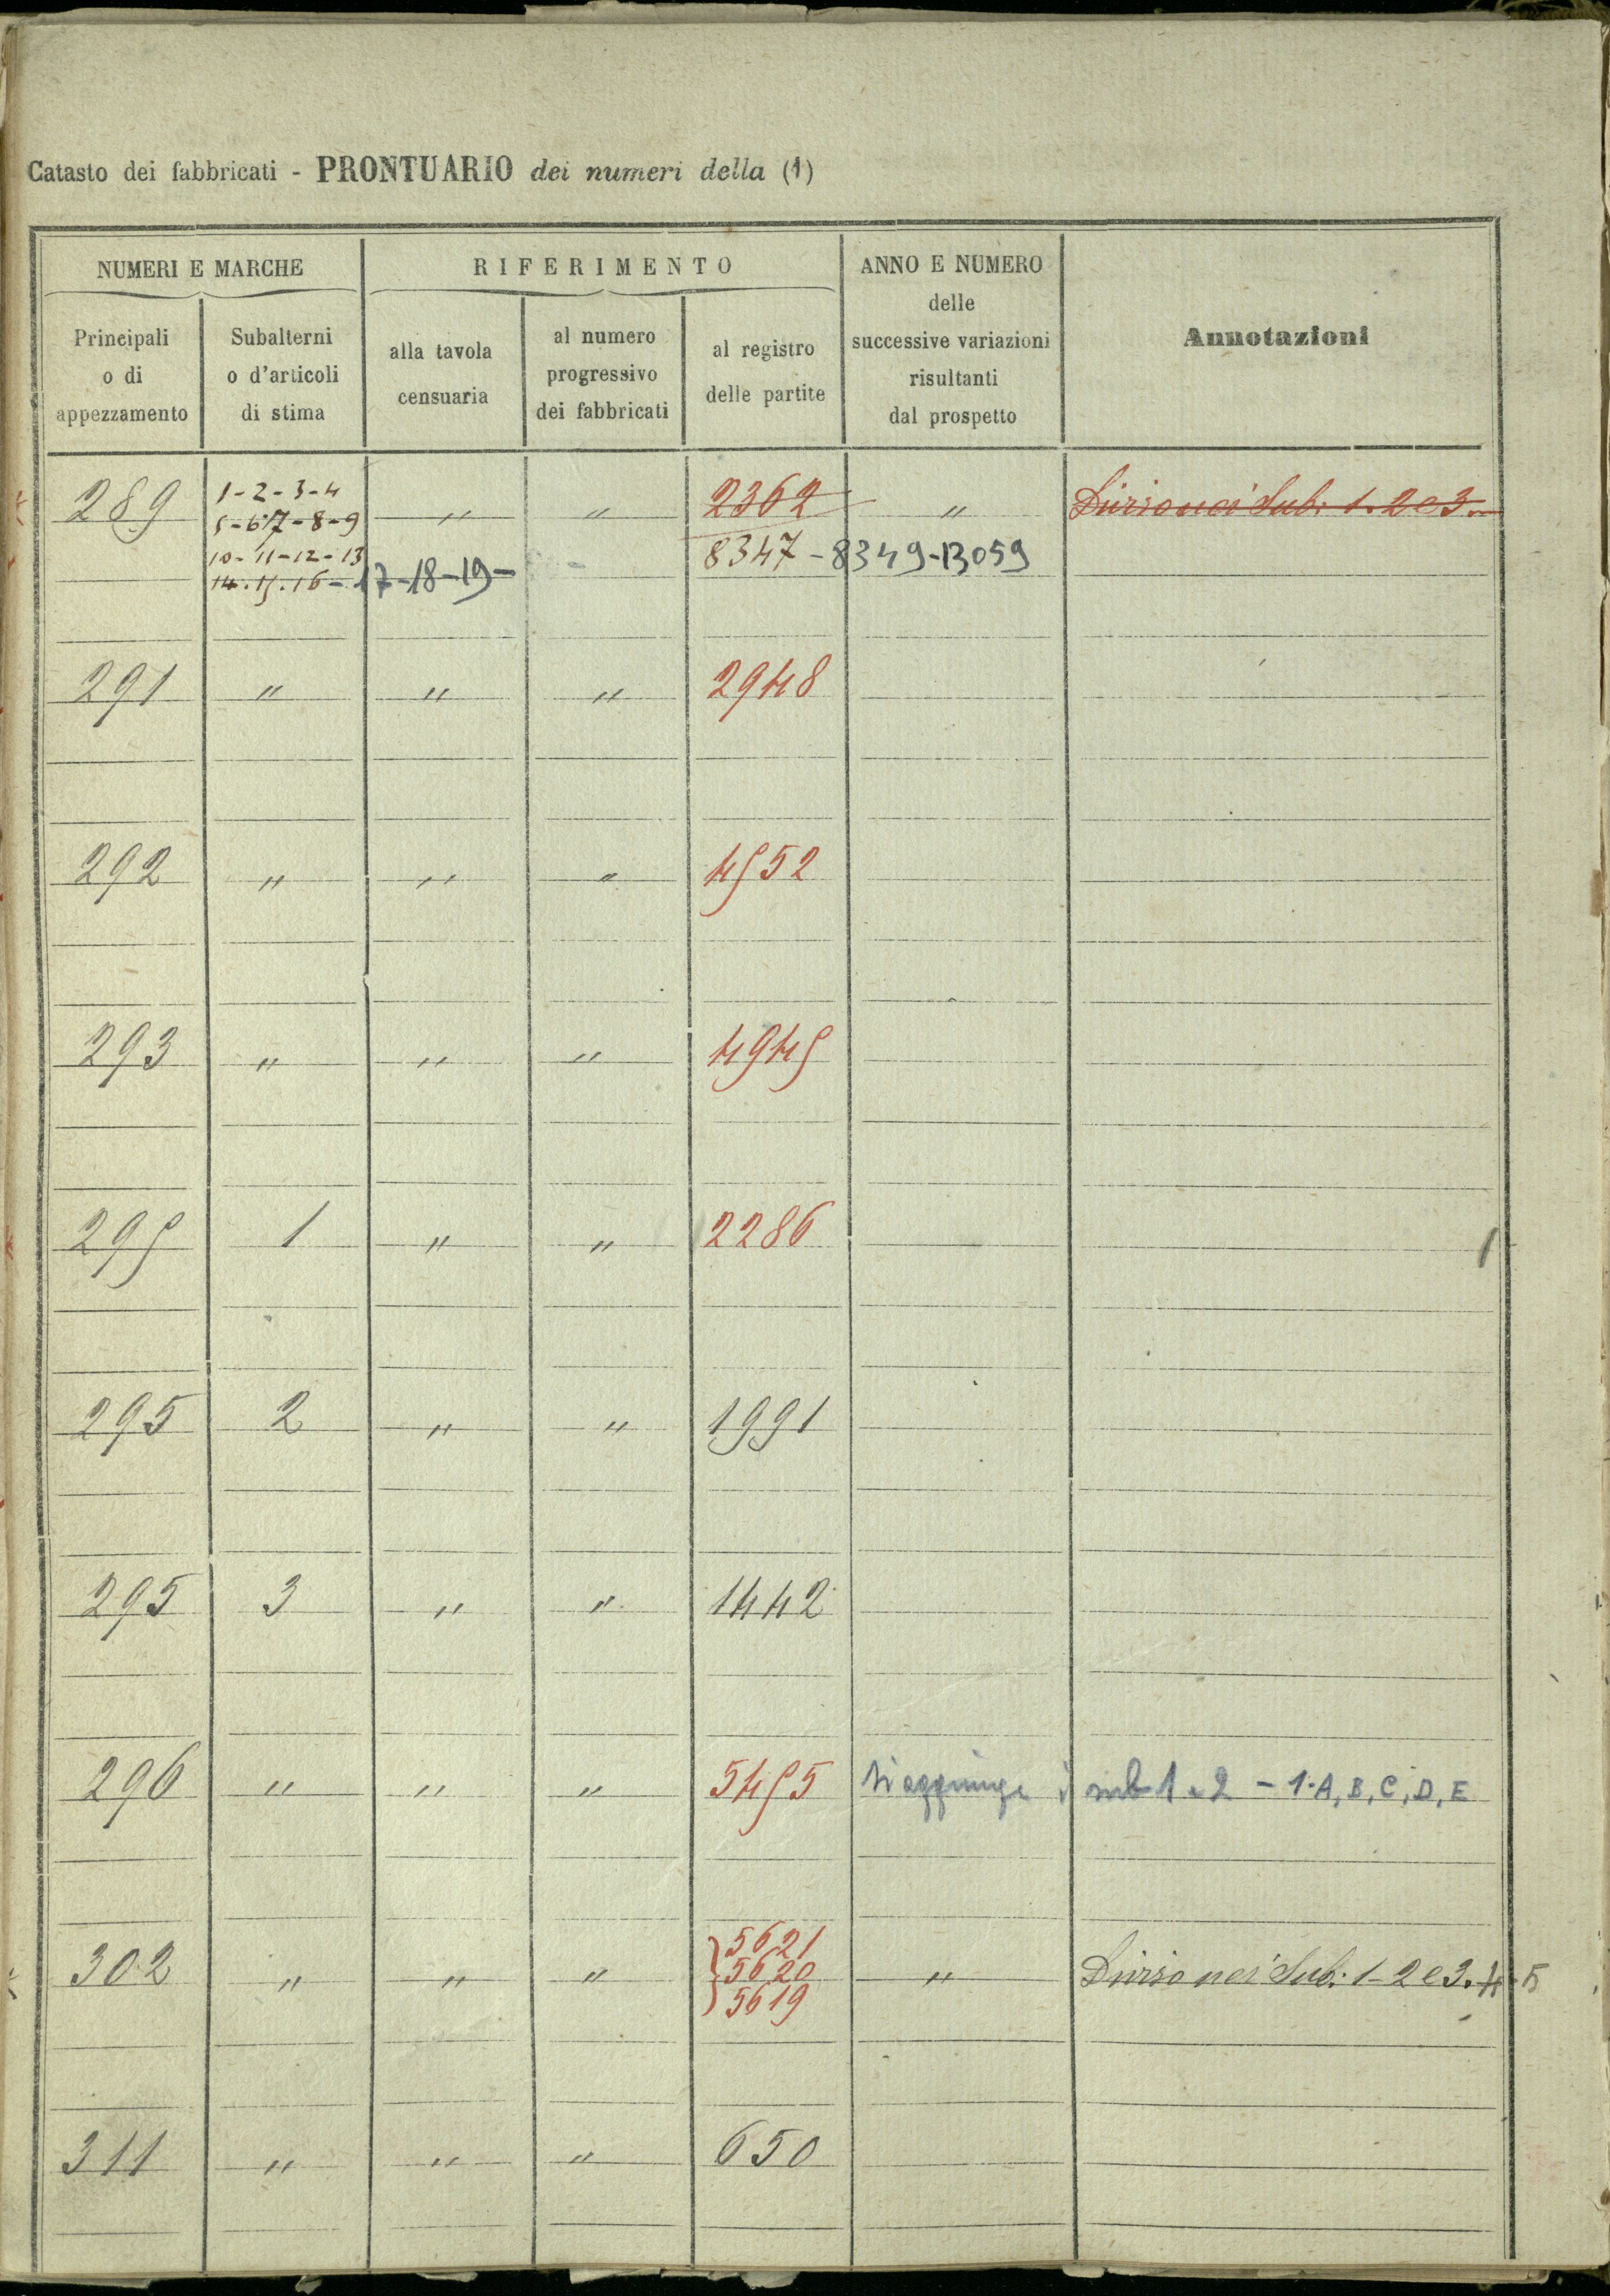 Catasto dei fabbricati - PRONTUARIO dei numeri della (1)
NUMERI E MARCHE
RIFERIMENTO
ANNO E NUMERO
delle
successive variazioni
risultanti
dal prospetto
Annotazioni
Principali
o di
appezzamento
Subalterni
o d'articoli
di stima
alla tavola
censuaria
al numero
progressivo
dei fabbricati
al registro
delle partite
289 1-2-3-4 " " 2362 " Diviso nei Sub. 1. 2 e 3.
5-6-7-8-9
10-11-12-13 8347-8349-13059
14.15.16-17-18-19-
291 " " " 2948
292 " " " 4552
293 " " " 4945
295 1 " " 2286
295 2 " " 1991
295 3 " " 1442
296 " " " 5455 Si aggiunge i sub 1 e 2 - 1.A, B, C, D, E
302 " " " 5621 " Diviso nei Sub. 1-2 e 3.4-5
5620
5619
311 " " " 650